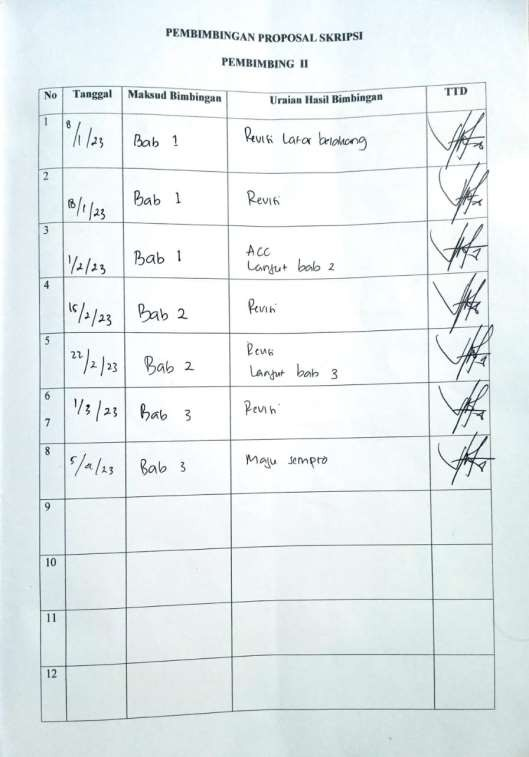 PEMBIMBINGAN PROPOSAL SKRIPSI
PEMBIMBING II
No Tanggal Maksud Bimbingan Uraian Hasil Bimbingan TTD
1 8/1/23 Bab 1 Revisi Latar belakang
2 18/1/23 Bab 1 Revisi
3 1/2/23 Bab 1 ACC
Lanjut bab 2
4 15/2/23 Bab 2 Revisi
5 22/2/23 Bab 2 Revisi
Lanjut bab 3
6 1/3/23 Bab 3 Revisi
7
8 Bab 3 Maju sempro
9
10
11
12